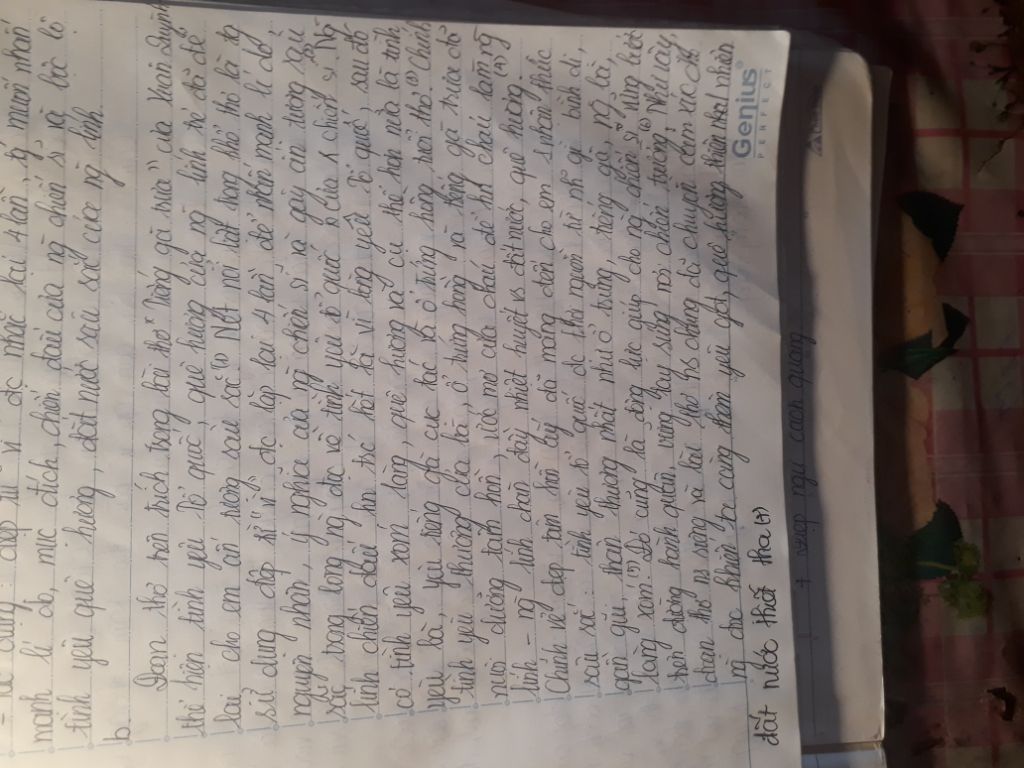 - Tác dụng: điệp từ vì đc nhắc lại 4 lần ý muốn nhấn
mạnh lí do, mục đích, chiến đấu của ng chiến sĩ và bộc lộ
tình yêu quê hương, đất nước sâu sắc của ng lính.
b.
Đoạn thơ trên trích trong bài thơ "Tiếng gà trưa" của Xuân Quỳnh
thể hiện tình yêu tổ quốc, quê hương của ng lính sẽ và để
lại cho em ấn tượng sâu sắc (1) Nét nổi bật trong khổ thơ là tg
sử dụng điệp từ "vì" đc lặp lại 4 lần, để nhấn mạnh lí do,
nguyên nhân, ý nghĩa của ng chiến sĩ và gây ấn tượng sâu
sắc trong lòng ng đọc về tình yêu tổ quốc của chiến sĩ. Ng
lính chiến đấu hi trc hết là vì lòng yêu tổ quốc, sau đó
có tình yêu xóm làng, quê hương và cụ thể hơn nữa là tình
yêu bà, yêu tiếng gà cục tác và ổ trứng hồng tuổi thơ. Chính
tình yêu thương của bà, ổ trứng hồng và tiếng gà trưa đã
nuôi dưỡng tâm hồn, ước mơ của cháu để ng cháu làm ng
lính - ng lính chan đầy nhiệt huyết vs đất nước, quê hương.
Chính vẻ đẹp tâm hồn ấy đã mang đến cho em nhận thức
sâu sắc: tình yêu tổ quốc đc khơi nguồn từ nh gì bình dị,
gần gũi, thân thương nhất như ổ trứng, tiếng gà, ng bà,
làng xóm. (5) Đó cũng là động lực giúp cho ng chiến sĩ vững bước
trên đường hành quân, vững tay súng nơi chiến trường. (6) Như vậy,
đoạn thơ ns riêng và bài thơ ns chung đã truyền cảm xúc tới
ng đọc khiến ta càng thêm yêu gđ, quê hương, thiên nhiên,
đất nước thiết tha (7)
Genius
PERFECT